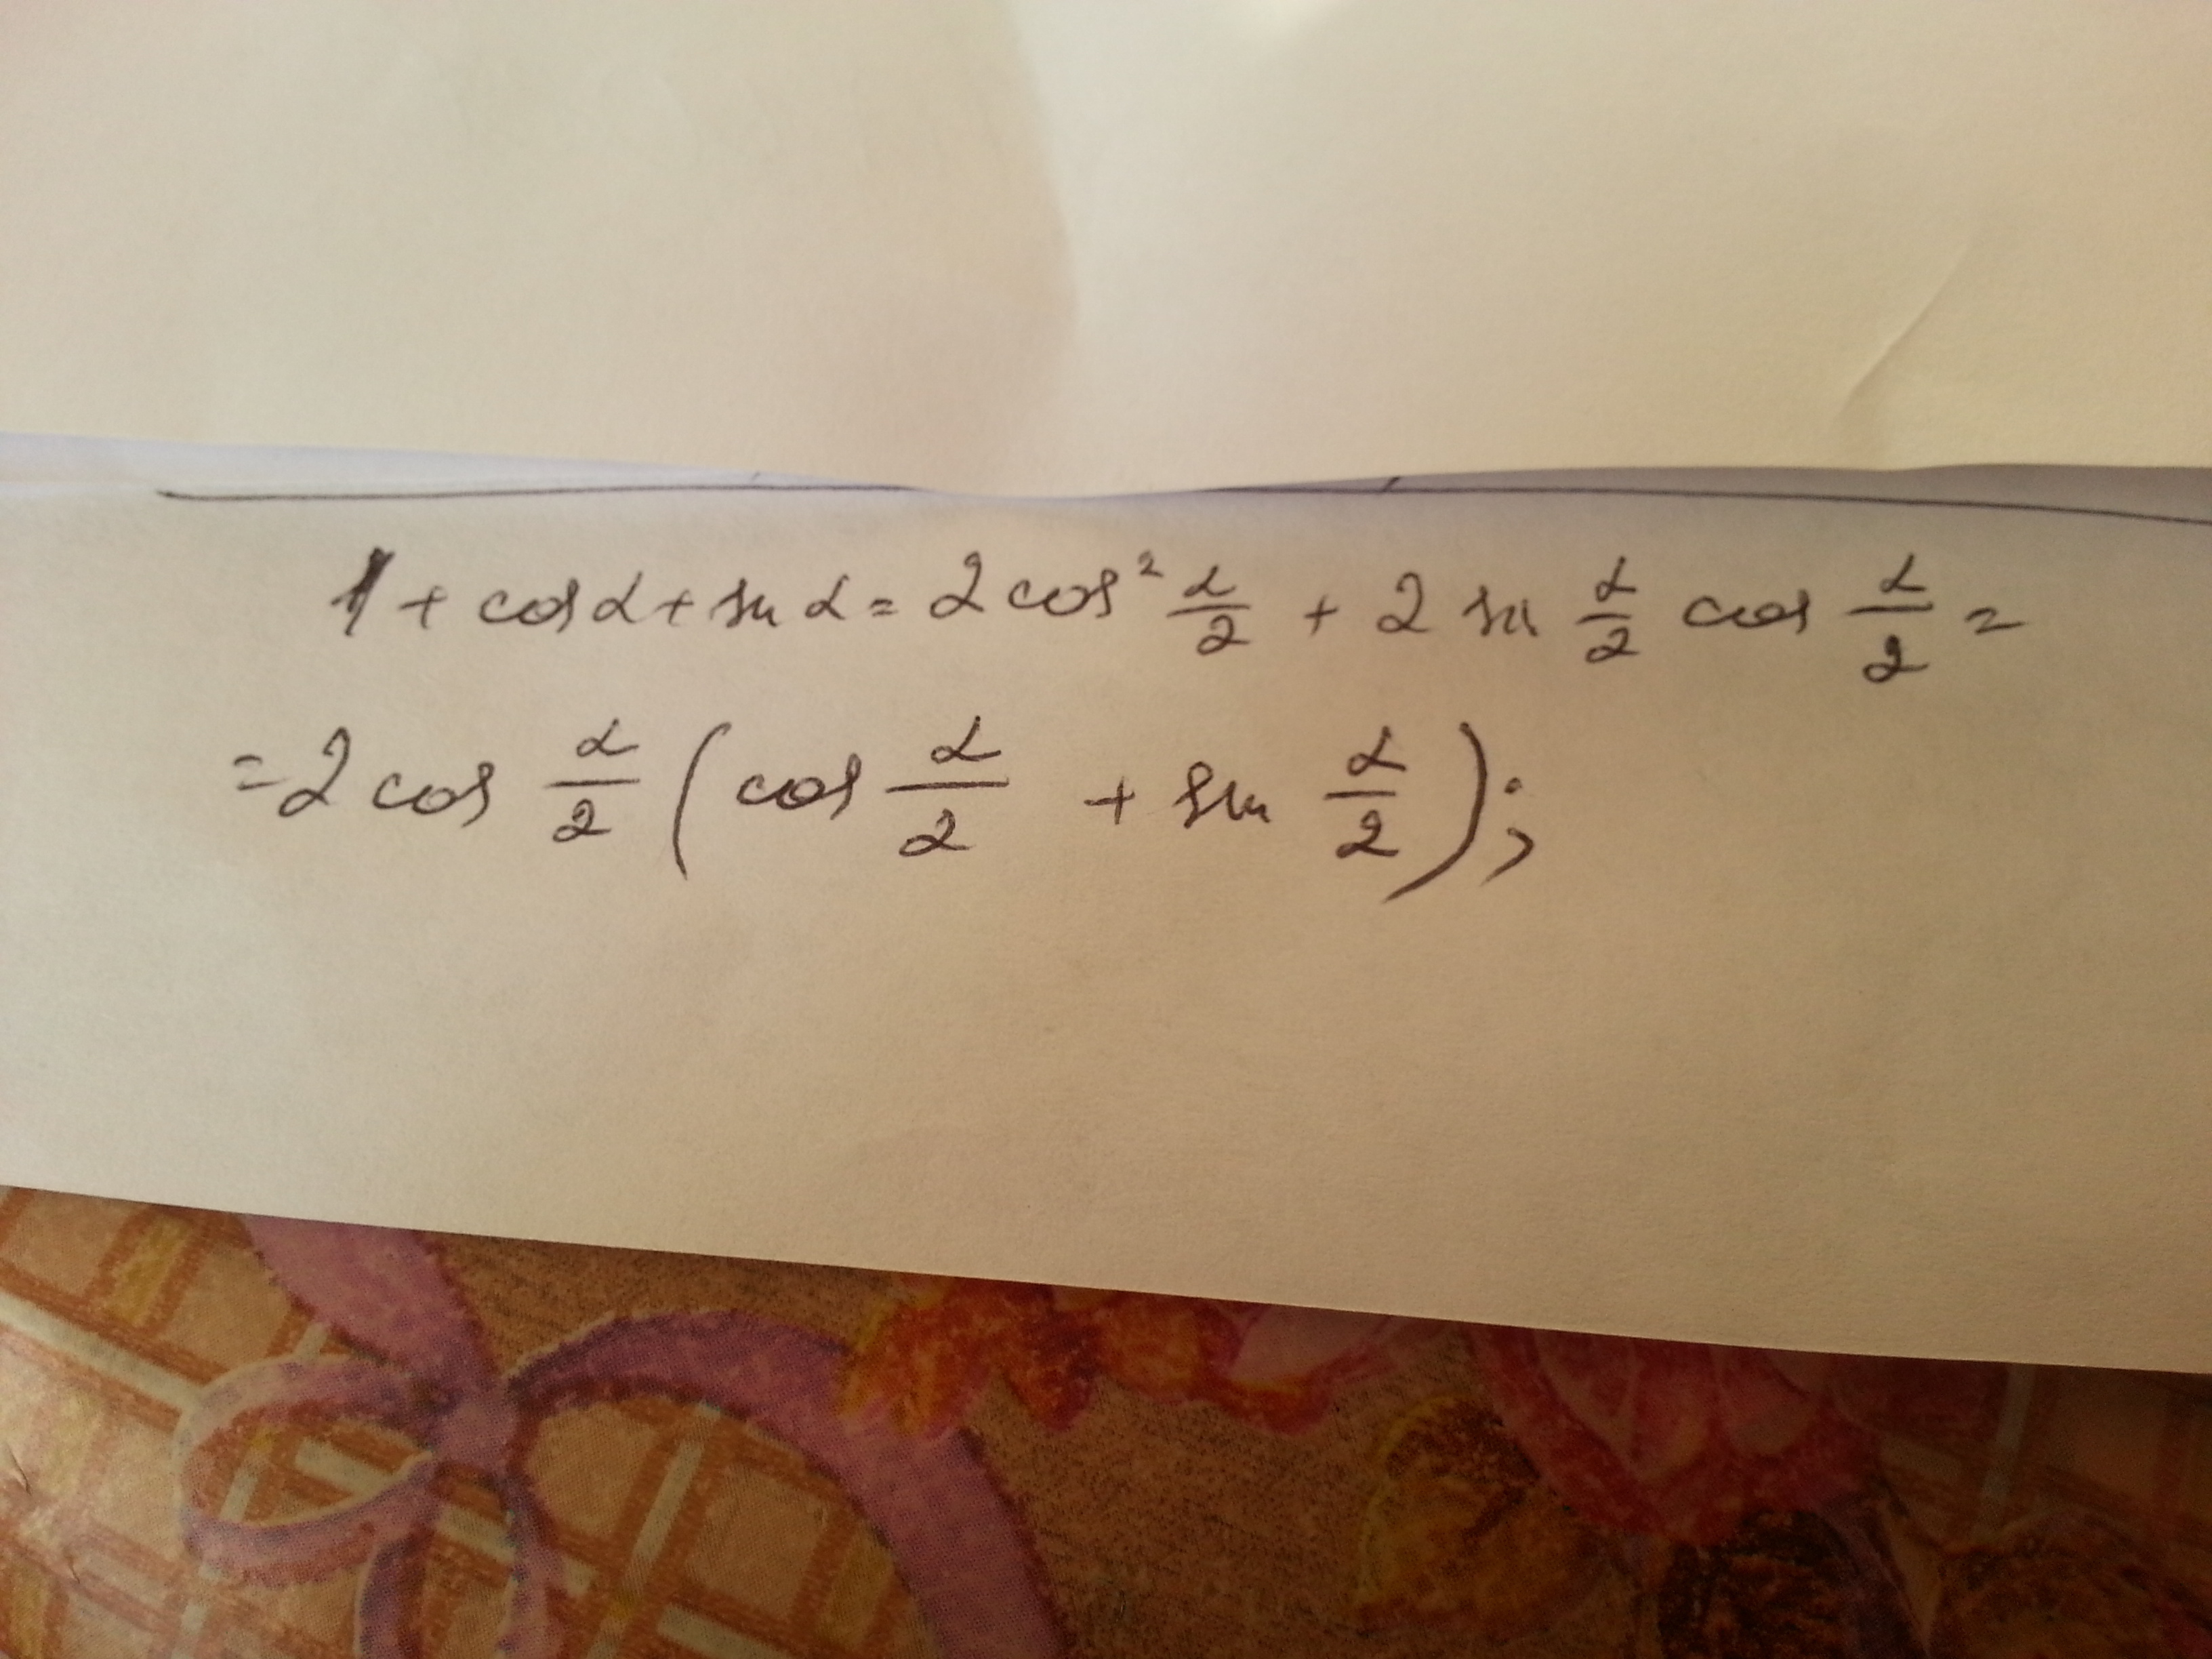 1 + cos α + sin α = 2 cos² α/2 + 2 sin α/2 cos α/2 =
= 2 cos α/2 ( cos α/2 + sin α/2 );